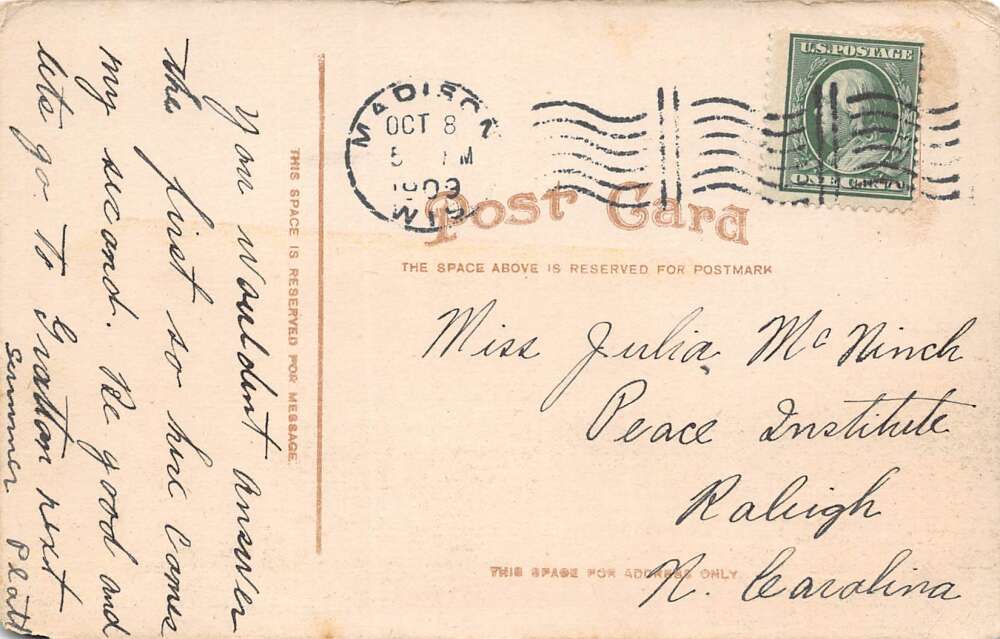 You wouldnt answer
the first so here comes
my second. Be good and
lets go to Gratton next
summer Platt
THIS SPACE IS RESERVED FOR MESSAGE.
MADISON
OCT 8
5 PM
1909
WIS
U.S. POSTAGE
ONE CENT
Post Card
THE SPACE ABOVE IS RESERVED FOR POSTMARK
Miss Julia McNinch
Peace Institute
Raleigh
N. Carolina
THIS SPACE FOR ADDRESS ONLY.